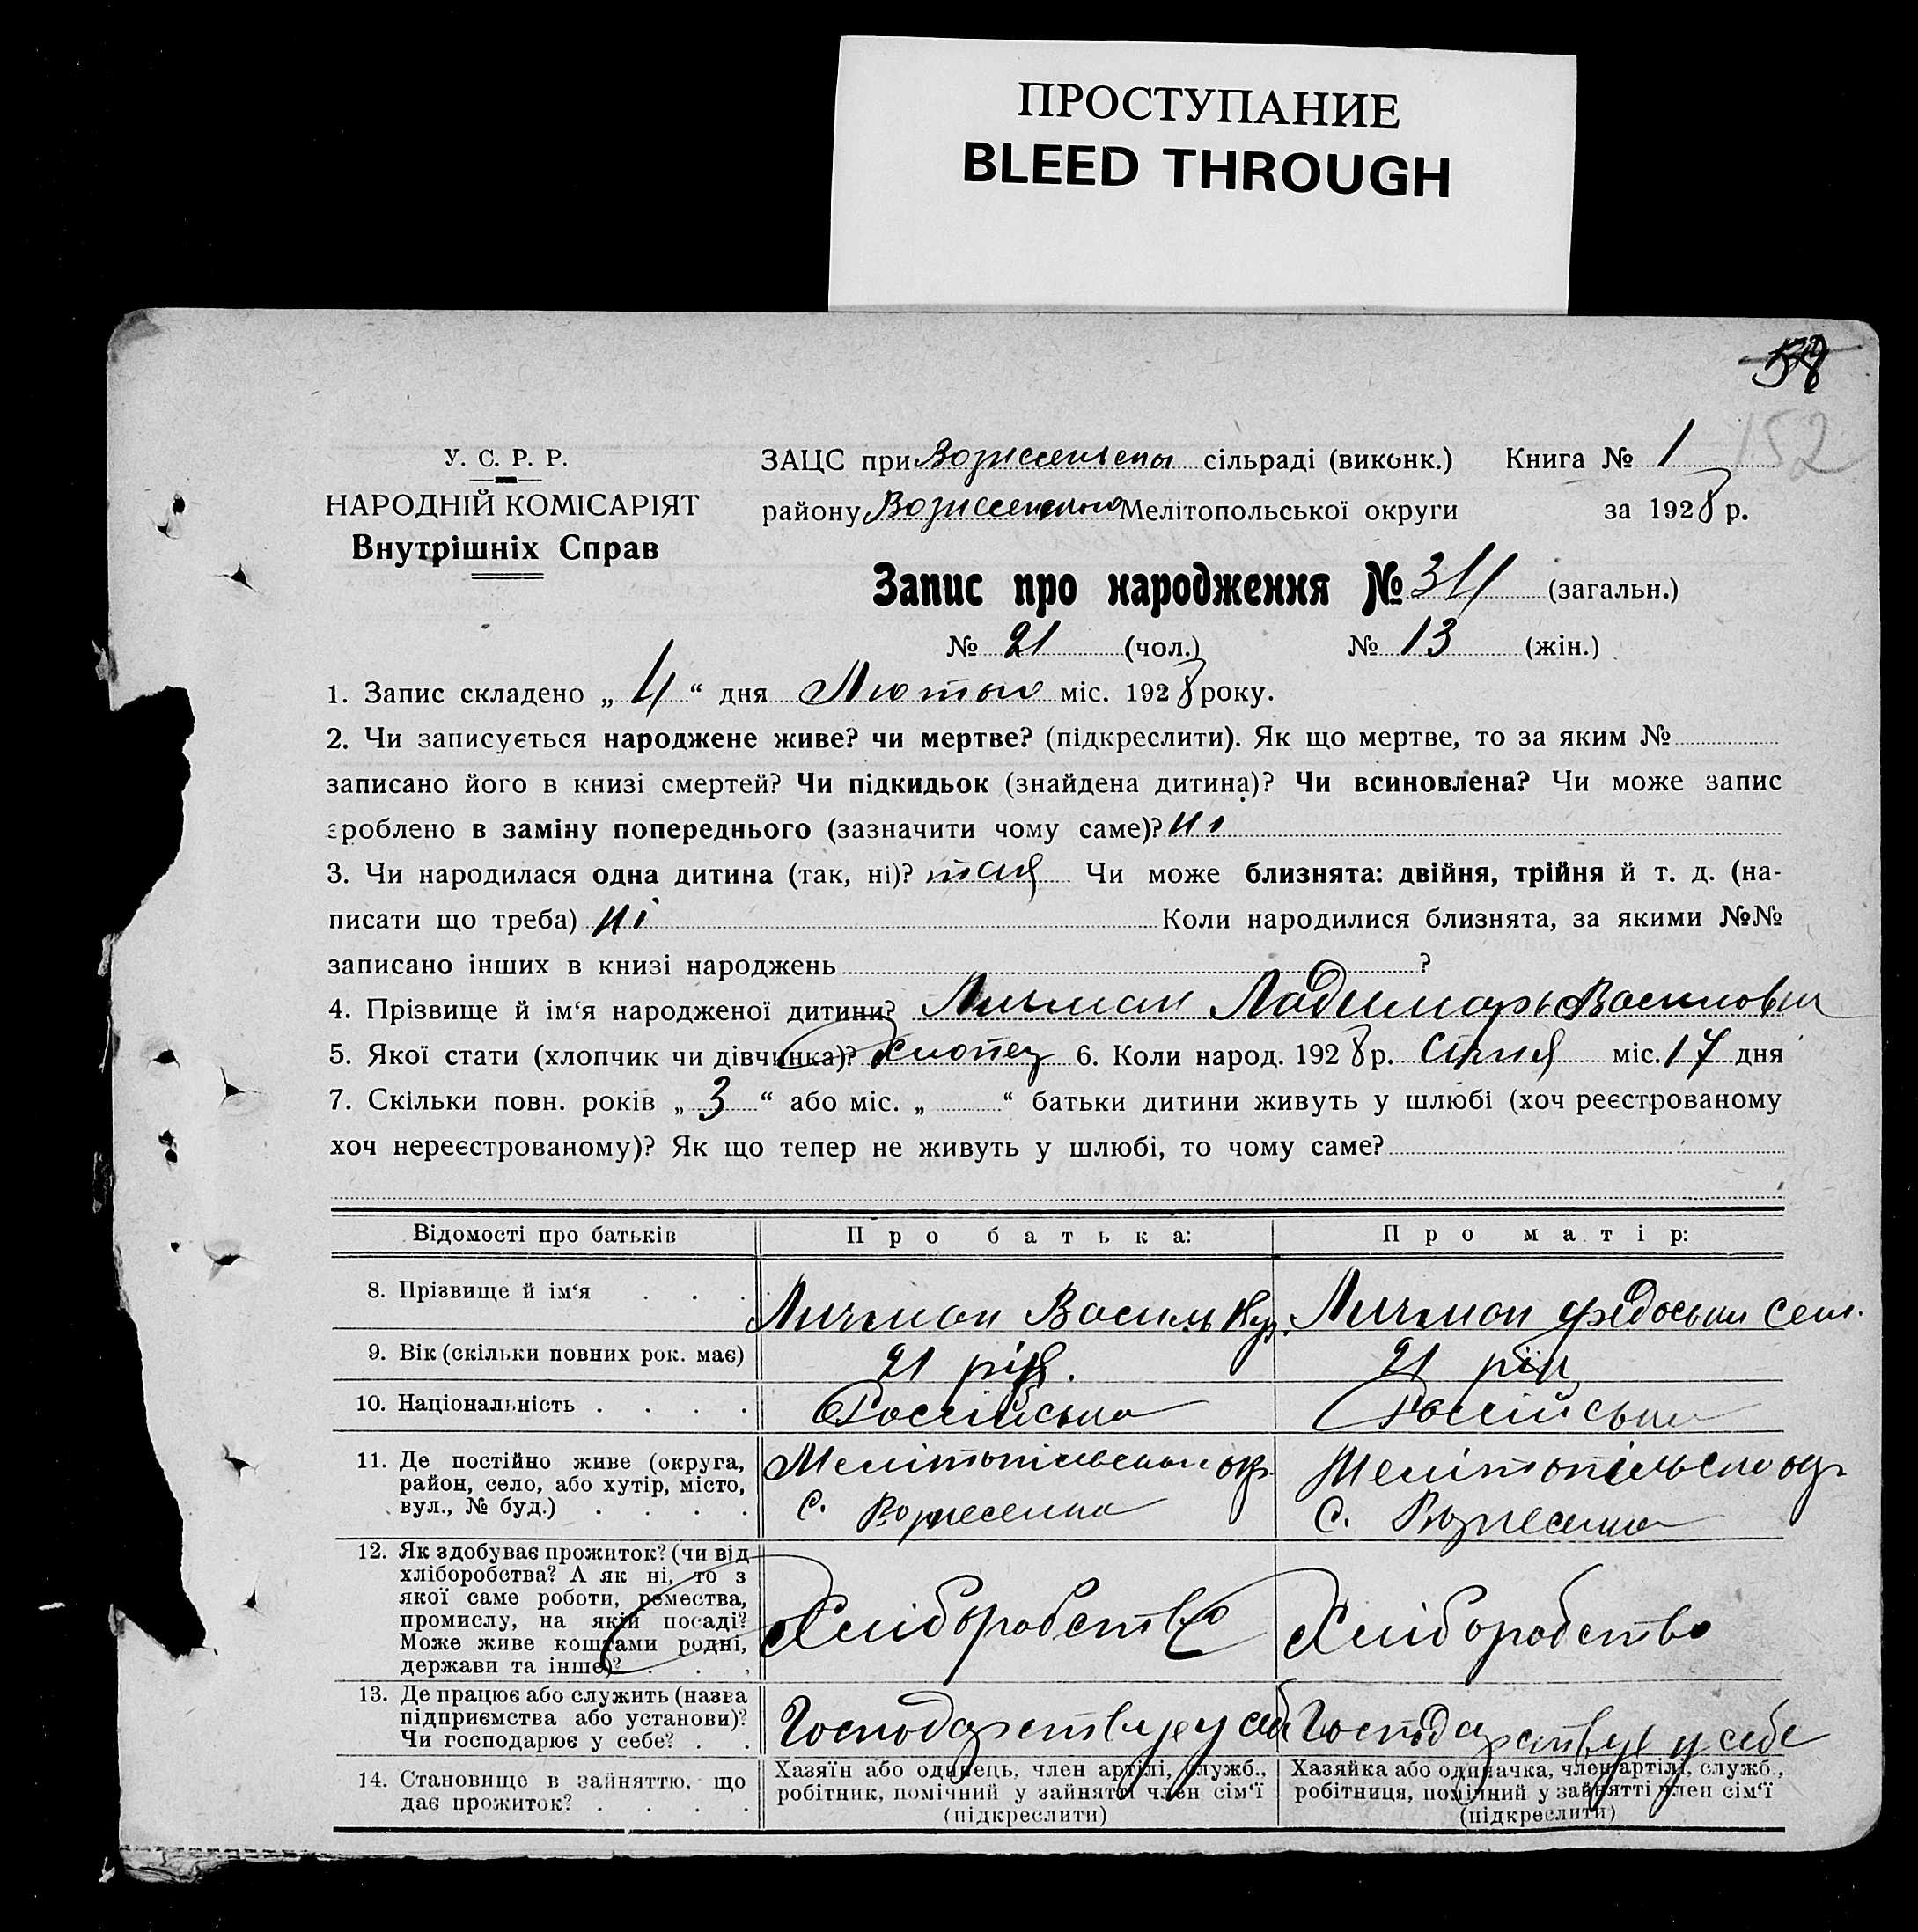 ПРОСТУПАНИЕ
BLEED THROUGH
152
У. С. Р. Р.
НАРОДНІЙ КОМІСАРІЯТ
Внутрішніх Справ
ЗАЦС при сільраді (виконк.) Книга № 1
району Мелітопольської округи за 1928 р.
Запис про народження № 34 (загальн.)
№ 21 (чол.) № 13 (жін.)
1. Запис складено „ 4 “ дня Лютого міс. 1928 року.
2. Чи записується народжене живе? чи мертве? (підкреслити). Як що мертве, то за яким №
записано його в книзі смертей? Чи підкидьок (знайдена дитина)? Чи всиновлена? Чи може запис
зроблено в заміну попереднього (зазначити чому саме)? ні
3. Чи народилася одна дитина (так, ні)? так Чи може близнята: двійня, трійня й т. д. (на-
писати що треба) ні Коли народилися близнята, за якими №№
записано інших в книзі народжень ?
4. Прізвище й ім‘я народженої дитини? Личман Ладимарь Василович
5. Якої стати (хлопчик чи дівчинка)? Хлопец 6. Коли народ. 1928 р. Січня міс. 17 дня
7. Скільки повн. років „ 3 “ або міс. „ “ батьки дитини живуть у шлюбі (хоч реєстрованому
хоч нереєстрованому)? Як що тепер не живуть у шлюбі, то чому саме?
Відомості про батьків Про батька: Про матір:
8. Прізвище й ім‘я . . . Личман Василь Личман Федосия Сем.
9. Вік (скільки повних рок. має) 21 рік. 21 рік
10. Національність . . . . Россійська Россійська
11. Де постійно живе (округа, район, село, або хутір, місто, вул., № буд.) . . . .
Мелітопільськои окр.
с. Вознесенка
Мелітопільськ окр
с. Вознесенка
12. Як здобуває прожиток? (чи від
хліборобства? А як ні, то з
якої саме роботи, ремества,
промислу, на якій посаді?
Може живе коштами родні,
держави та інше)? . . .
Хліборобство Хліборобство
13. Де працює або служить (назва
підприємства або установи)?
Чи господарює у себе? . .
Господарствуе у себе Господарствуе у себе
14. Становище в зайняттю, що
дає прожиток? . . . .
Хазяїн або одинець, член артілі, служб.,
робітник, помічний у зайнятті член сім‘ї
(підкреслити)
Хазяйка або одиначка, член артілі, служб.,
робітниця, помічний у зайнятті член сім‘ї
(підкреслити)